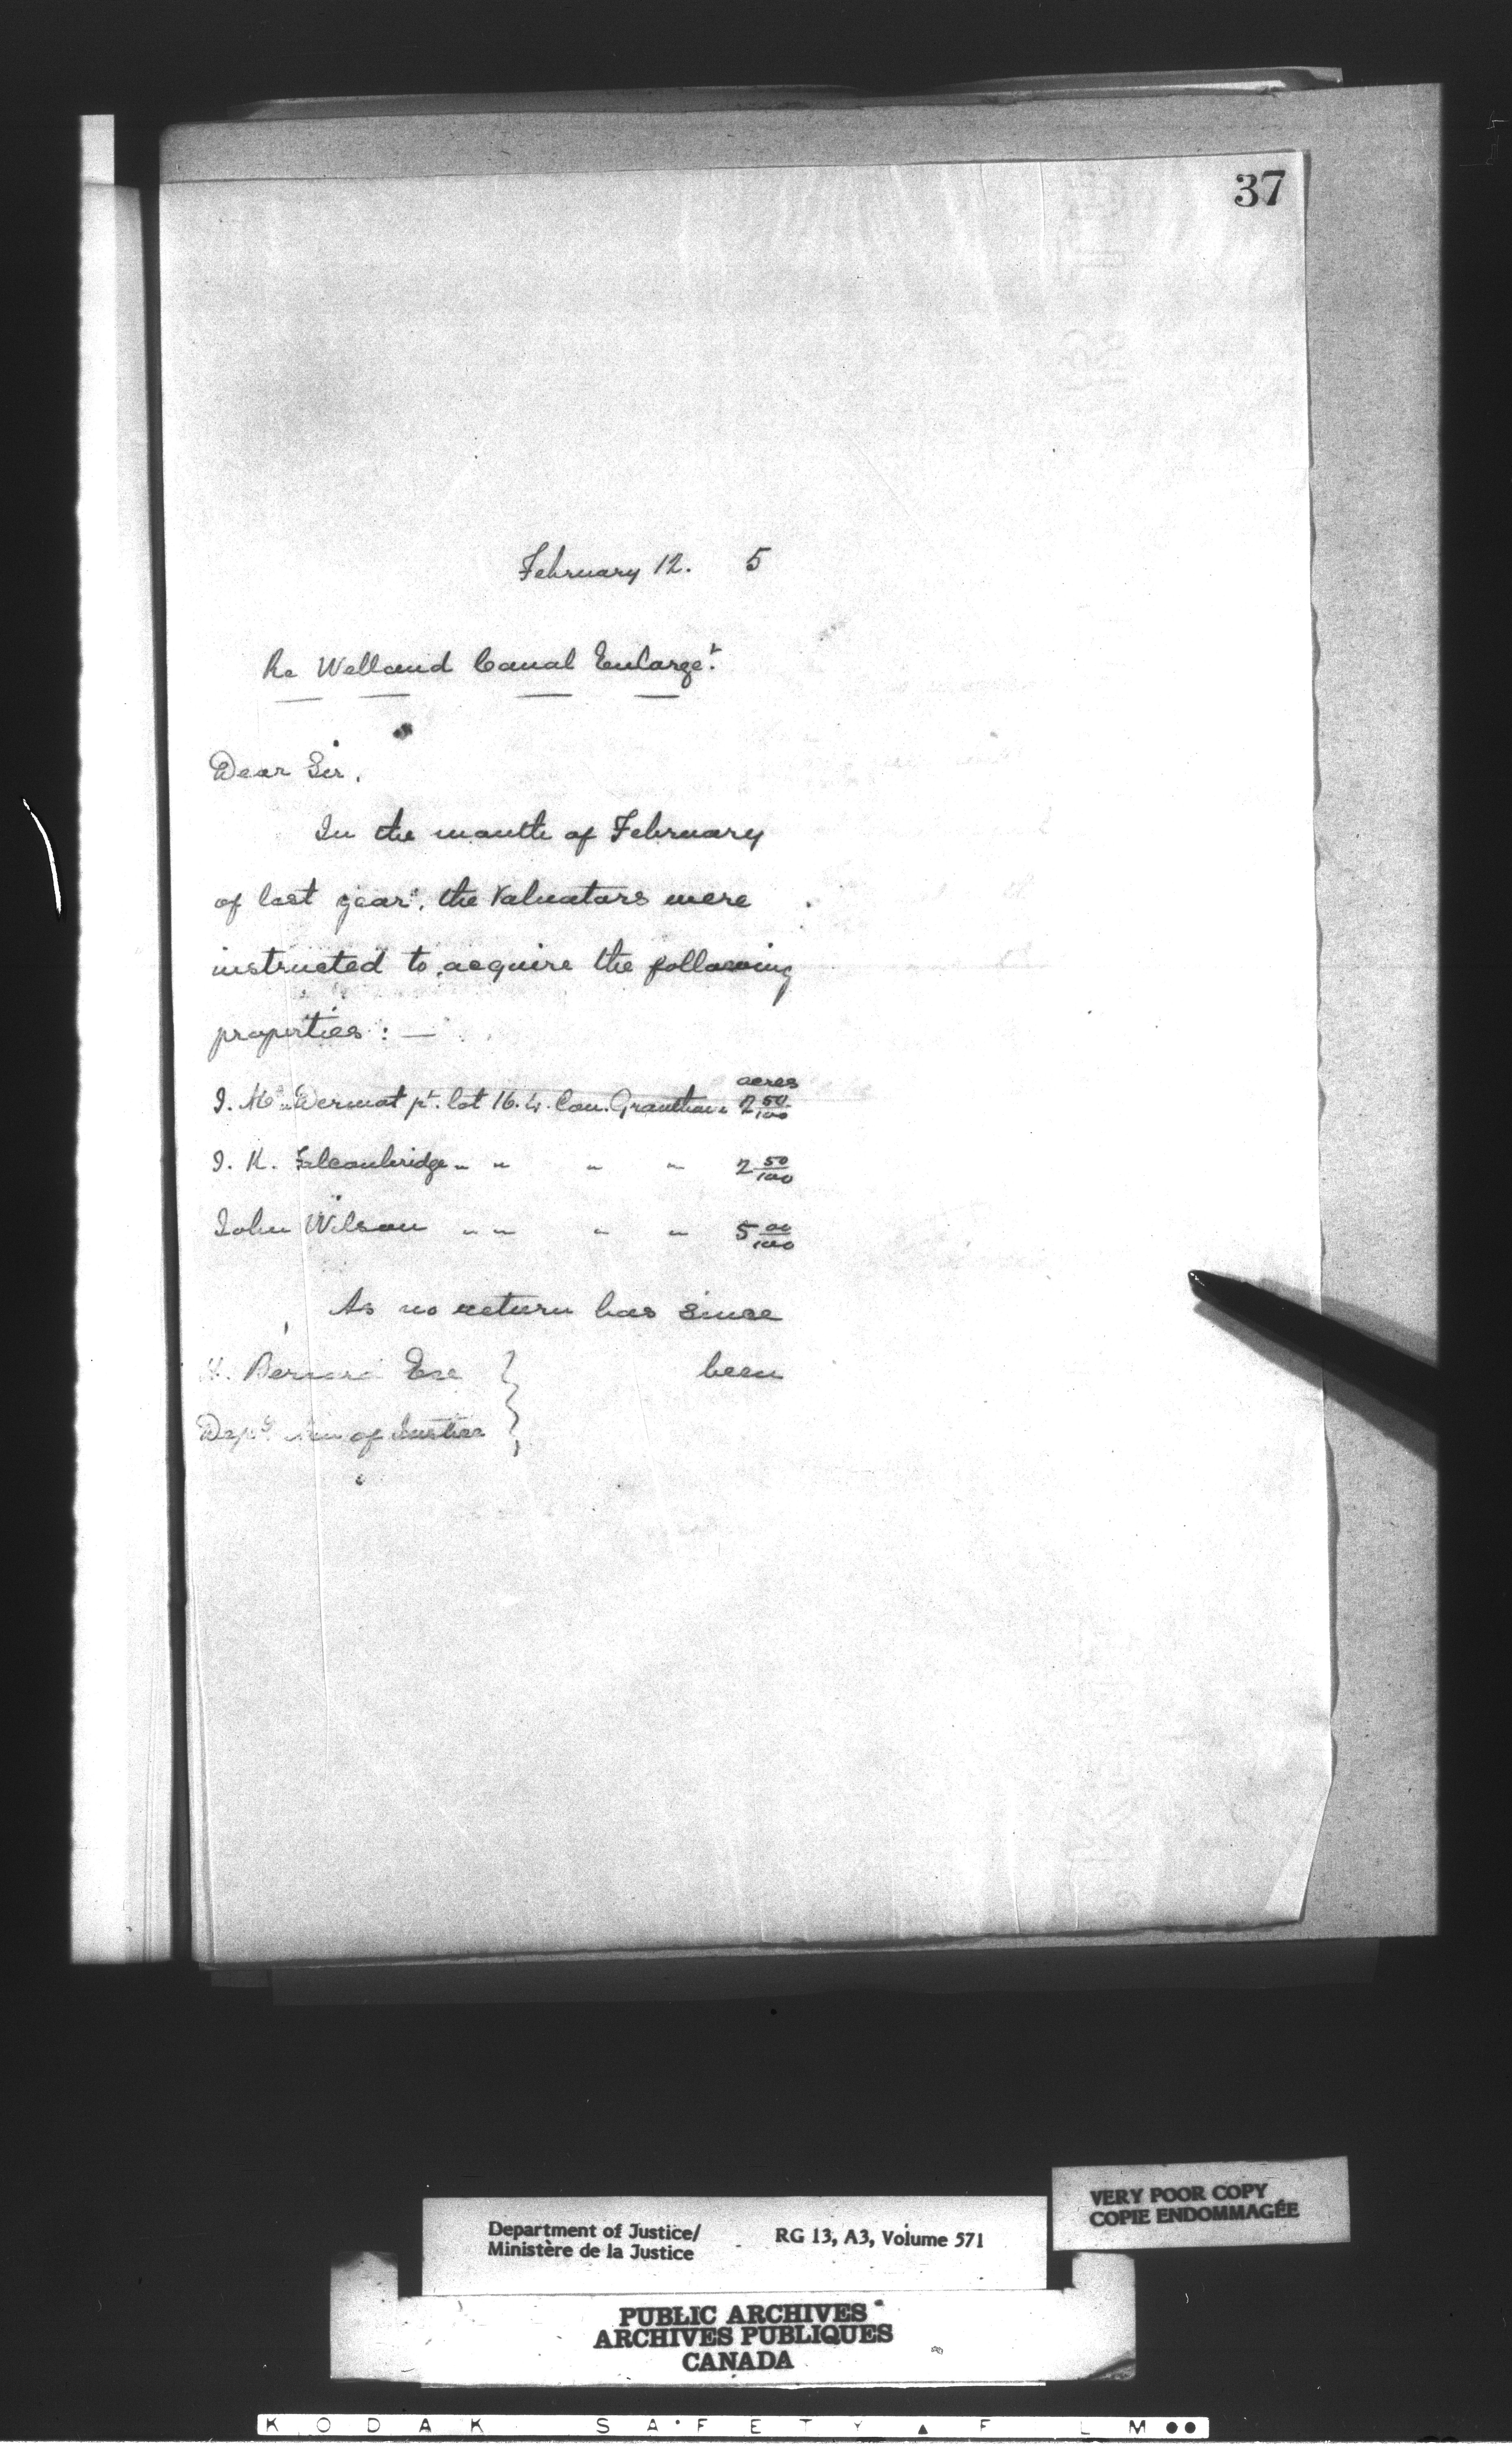 37
February 12. 5
Re Welland Canal Enlarget.
Dear Sir,
In the month of February
of last year, the Valuators were
instructed to acquire the following
properties: —
acres
J. McDermot pt. lot 16. 4. Con. Grantham 2 50/100
J. K. Falconbridge " " " " 2 50/100
John Wilson " " " " 5 00/100
As no return has since
H. Bernard Esq } been
Depy Min of Justice
VERY POOR COPY
COPIE ENDOMMAGÉE
Department of Justice/ RG 13, A3, Volume 571
Ministère de la Justice
PUBLIC ARCHIVES
ARCHIVES PUBLIQUES
CANADA
KODAK SAFETY FILM